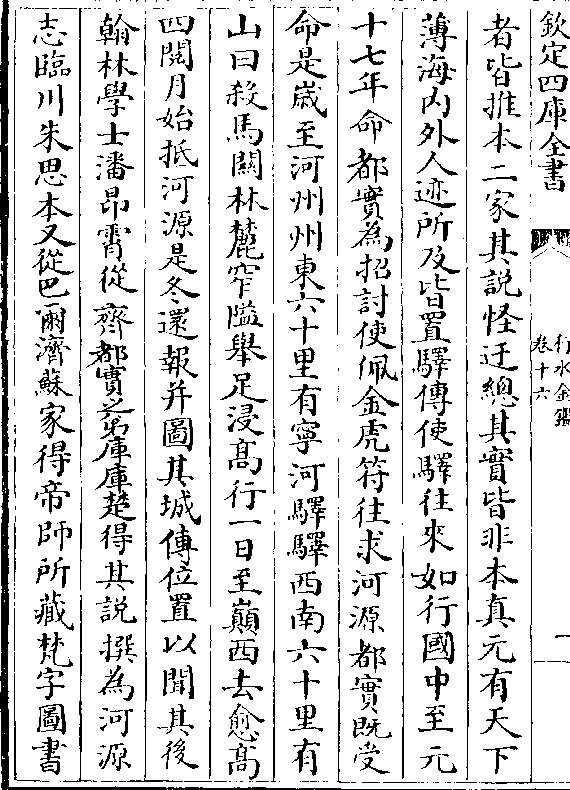 欽定四庫全書
行水金鑑
卷十六
一
者皆推本二家其說怪迂總其實皆非本真元有天下
薄海內外人迹所及皆置驛傳使驛往來如行國中至元
十七年命都實為招討使佩金虎符往求河源都實既受
命是嵗至河州州東六十里有寧河驛驛西南六十里有
山曰殺馬關林麓窄隘舉足浸髙行一日至巔西去愈髙
四閱月始抵河源是冬還報并圖其城傳位置以聞其後
翰林學士潘昂霄從都實之弟庫庫楚得其說撰為河源
志臨川朱思本又從巴爾濟蘇家得帝師所藏梵字圖書